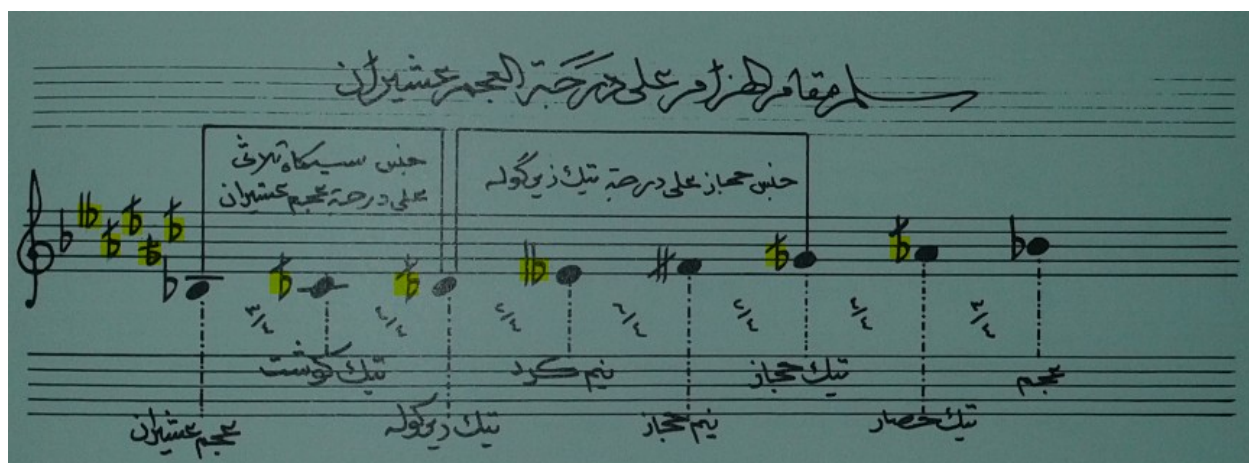 سلم مقام الهزام على درجة العجم عشيران
جنس سيكاه ثلاثي
على درجة عجم عشيران
جنس حجاز على درجة تيك زيرگوله
٣/٤ ٤/٤ ٢/٤ ٦/٤ ٢/٤ ٤/٤ ٣/٤
تيك كوشت نيم كرد تيك حجاز عجم
عجم عشيران تيك زيركوله نيم حجاز تيك حصار